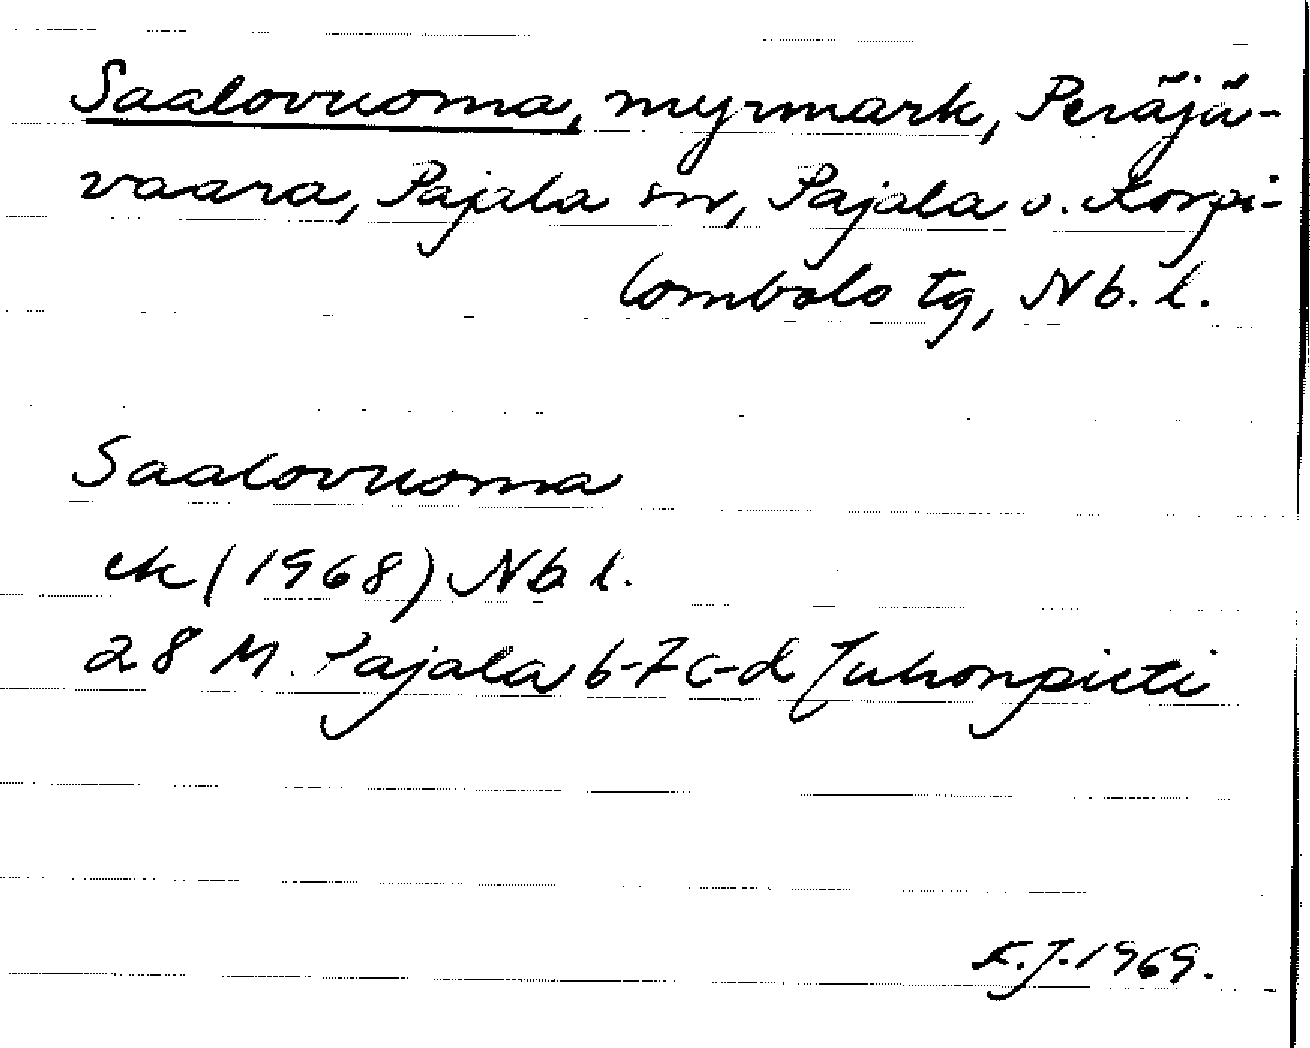 Saalovuoma, myrmark, Peräjä-
vaara, Pajala sn, Pajala o. Korpi-
lombolo tg, Nb. l.
Saalovuoma
ek (1968) Nb l.
28 M. Pajala 6-7 c-d Juhonpieti
E.J. 1969.